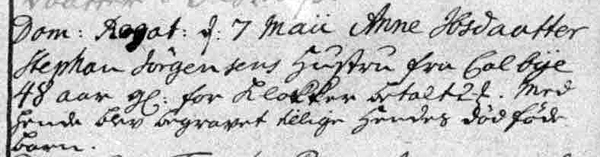 Dom: Rogat: d: 7 Maii Anne Ibsdaatter
Stephan Jörgensens Hustru fra Calbÿe
48 aar gl: for Klokker betalt 2 ₰. Med
hende blev begravet tillige hendes dödföde
barn.